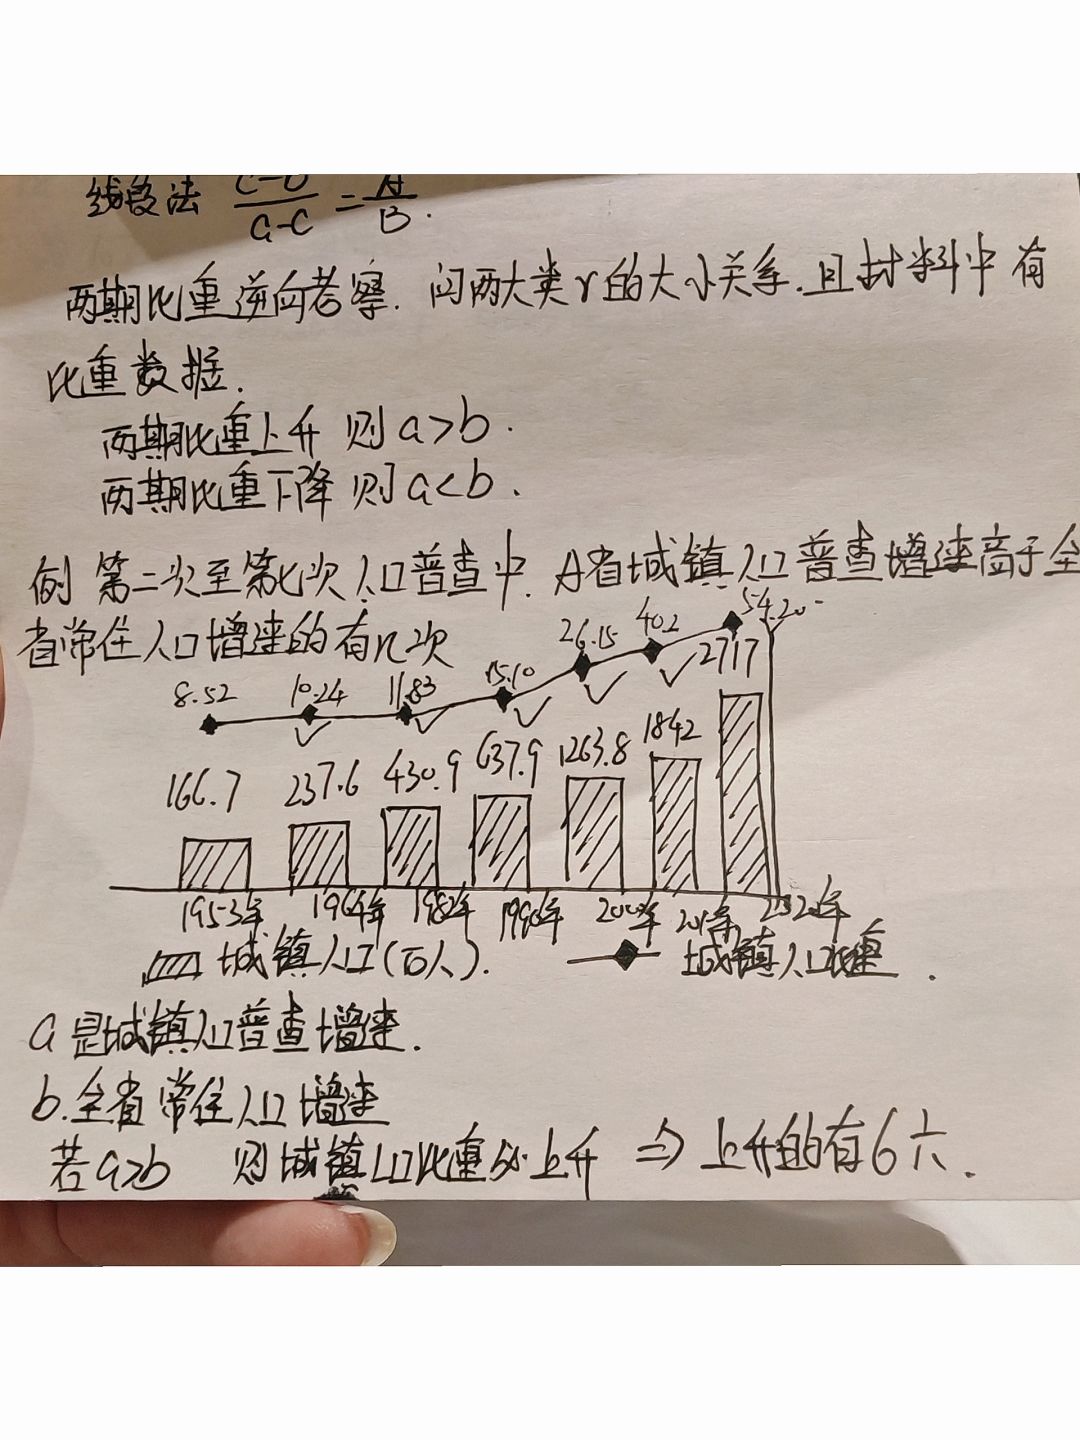 线段法 C-b/a-C = A/B.
两期比重逆向考察. 问两大类r的大小关系.且材料中有
比重数据.
两期比重上升 则 a>b.
两期比重下降 则 a<b.
例 第二次至第七次人口普查中. A省城镇人口普查增速高于全
省常住人口增速的有几次
8.52 10.24 11.83 15.10 26.15 40.2 54.20
166.7 237.6 430.9 637.9 1263.8 1842 2717
1953年 1964年 1982年 1990年 2000年 2020年
城镇人口(百人). 城镇人口比重.
a是城镇人口普查增速.
b.全省常住人口增速
若a>b 则城镇人口比重必上升 ⇒ 上升的有6六.